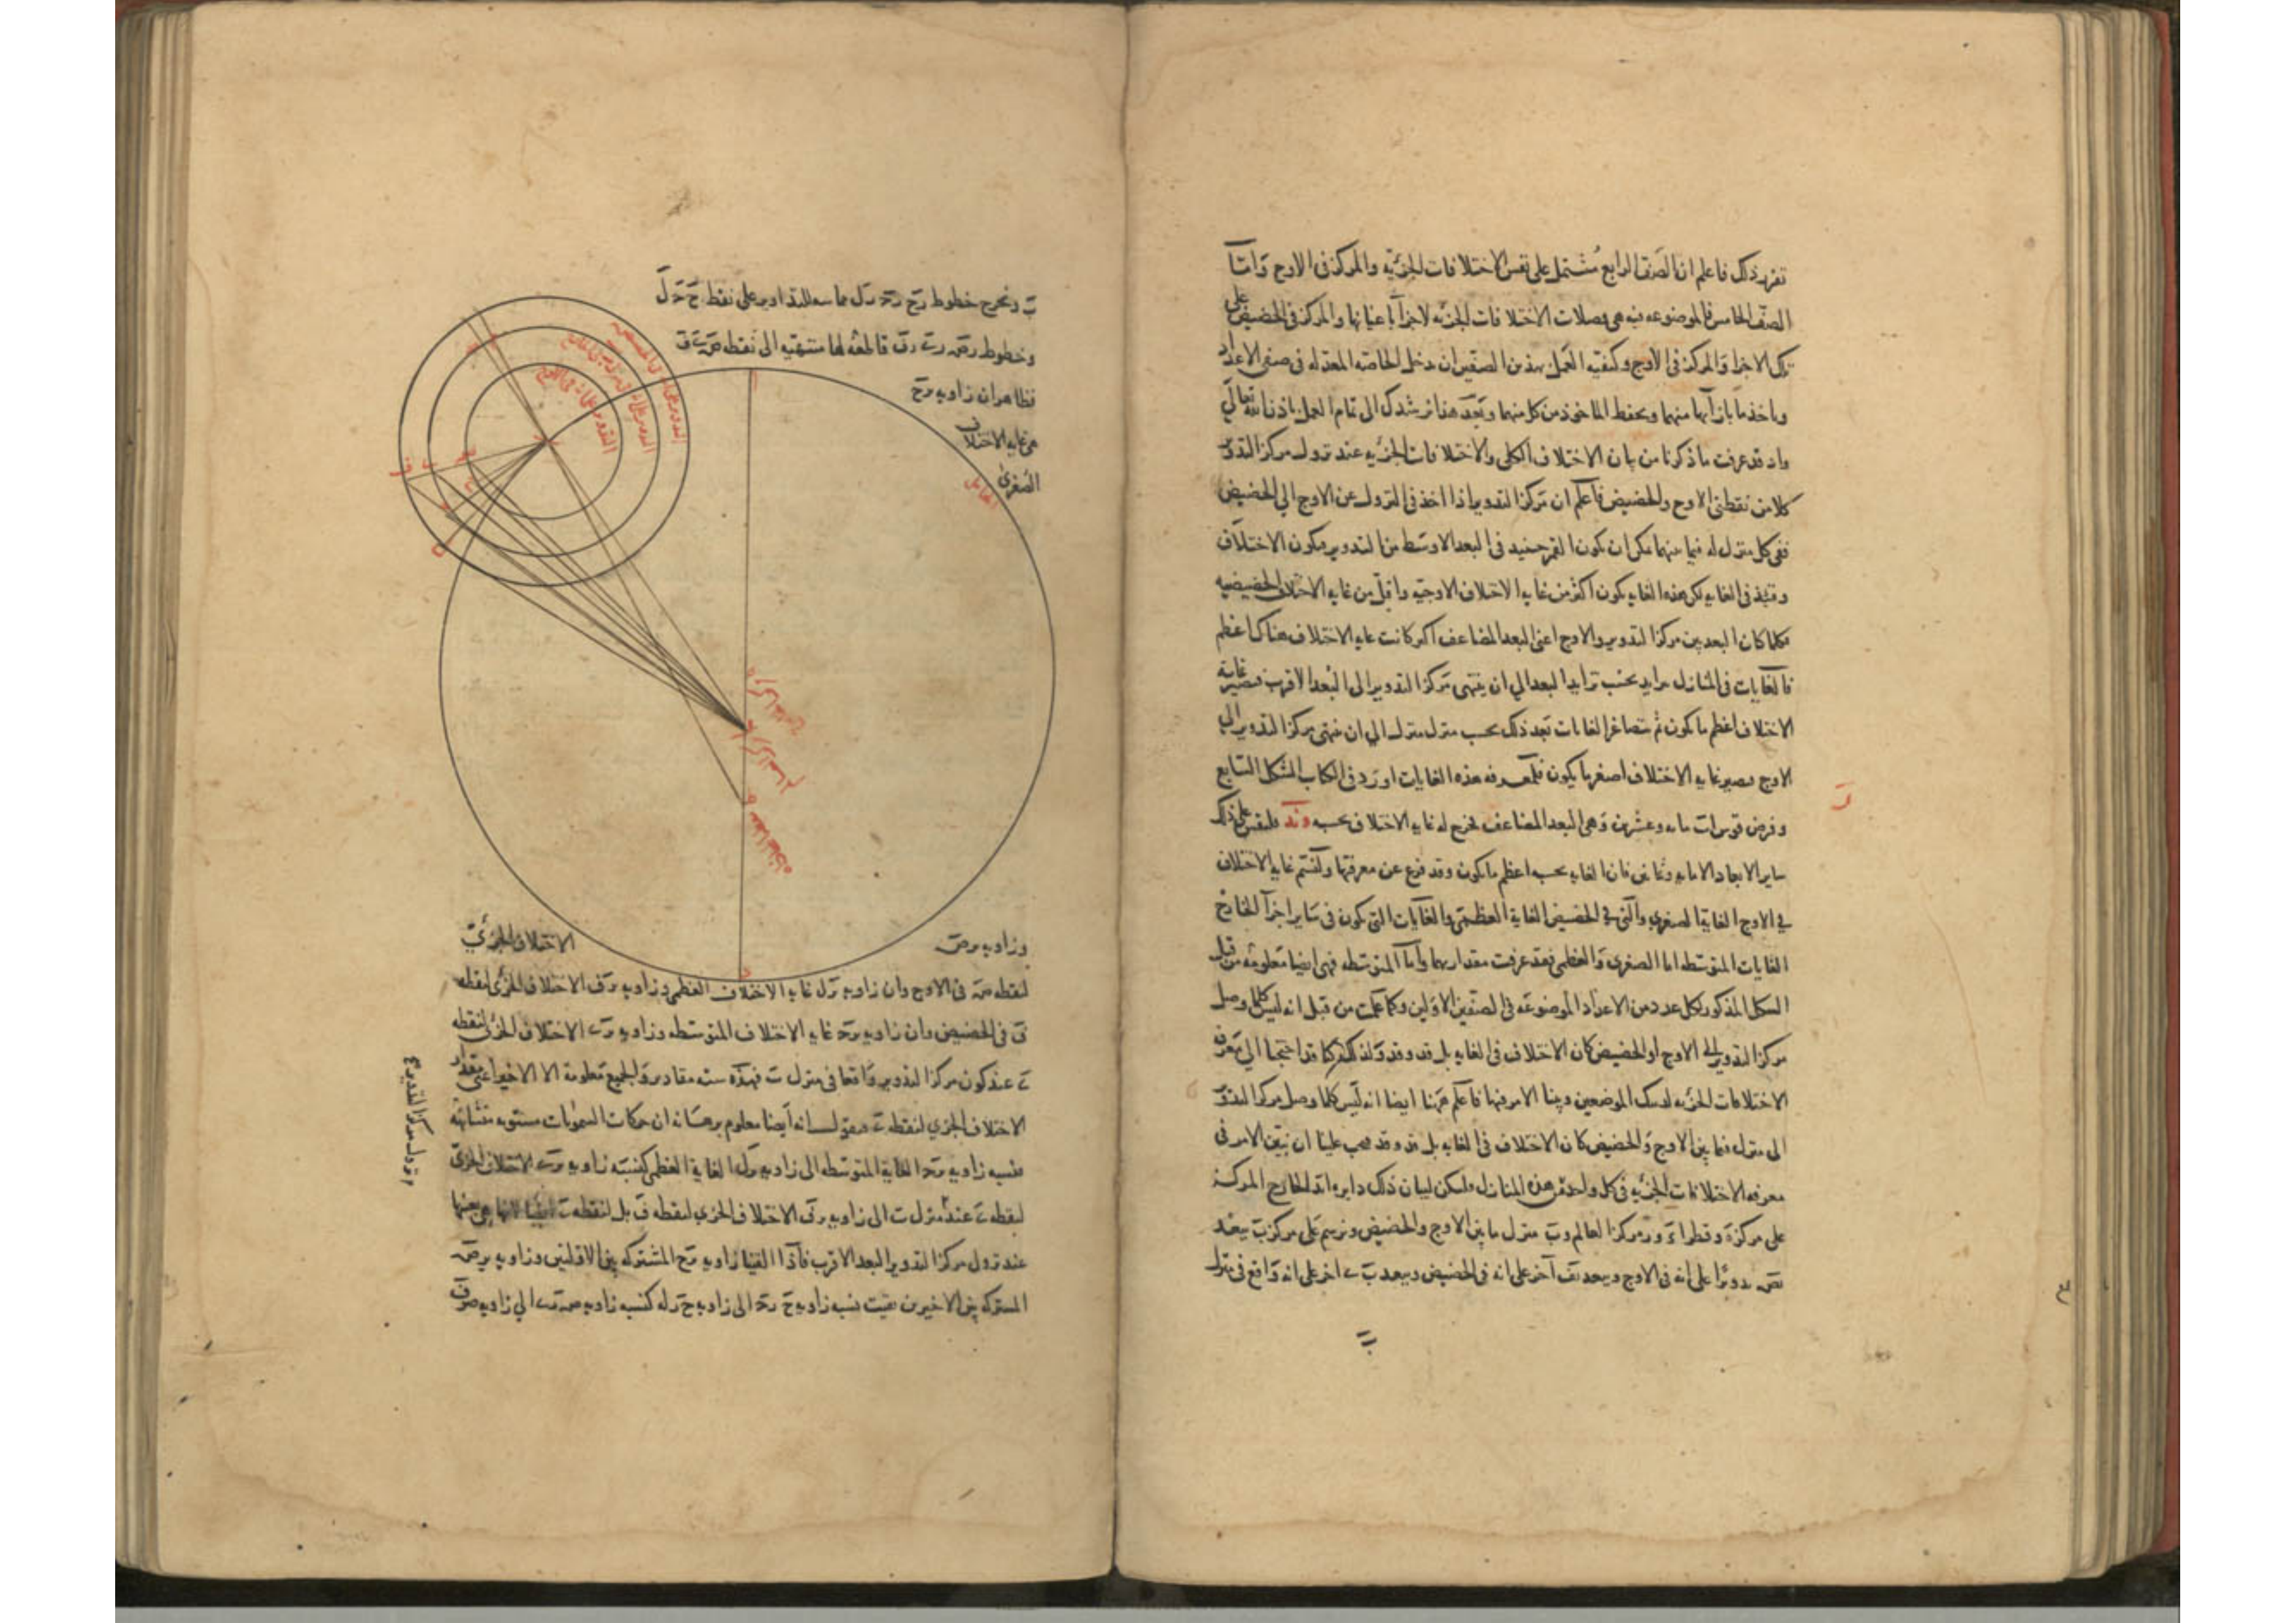 تقرر ذلك فاعلم ان الصنف الرابع مشتمل على نفس الاختلافات الجزئية والمركز فى الاوج وامّا
الصنف الخامس فالموضوعه فيه هى فضلات الاختلافات الجزئيه لاجزآ باعيانها والمركز فى الحضيض على
تلك الاجزا والمركز فى الاوج وكيفيه العمل بهذين الصنفين ان تدخل الخاصه المعدله فى صنفى الاعداد
وياخذ ما بازآيها منهما ويحفظ الماخوذ من كل منهما وبعد هذا نرشدك الى تمام العمل باذن الله تعالى
واذ قد عرفت ما ذكرنا من بيان الاختلاف الكلى والاختلافات الجزئيه عند نزول مركز التدوير
كلا من نقطتى الاوج والحضيض فاعلم ان مركز التدوير اذا اخذ فى النزول عن الاوج الى الحضيض
ففى كل منزل له فيما بينهما يمكن ان يكون القمر حينيذ فى البعد الاوسط من التدوير فيكون الاختلاف
وقتيذ فى الغايه لكن هذه الغايه يكون اكثر من غايه الاختلاف الاوجيه واقل من غايه الاختلاف الحضيضيه
فكلما كان البعد بين مركز التدوير والاوج اعنى البعد المضاعف اكبر كانت غايه الاختلاف هناك اعظم
فالغايات فى المنازل تزايد بحسب تزايد البعد الى ان ينتهى مركز التدوير الى البعد الاقرب فيصير غاية
الاختلاف اعظم ما يكون ثم تتصاغر الغايات بعد ذلك بحسب منزل منزل الى ان ينتهى مركز التدوير الى
الاوج فيصير غايه الاختلاف اصغر ما يكون فلمعرفه هذه الغايات اورد فى الكتاب الشكل السابع
وفرض قوس اب مايه وعشرين وهى البعد المضاعف فخرج له غايه الاختلاف بحسبه فليقس على ذلك
ساير الابعاد الا مايه وثمانين فان الغايه بحسبه اعظم ما يكون وقد فرغ عن معرفتها ولنسم غايه الاختلاف
فى الاوج الغاية الصغرى والتى فى الحضيض الغاية العظمى والغايات التى يكون فى ساير اجزآ الخارج
الغايات المتوسطه اما الصغرى والعظمى فقد عرفت مقداريهما وامآ المتوسطه فهى ايضا معلومه من قبل
الشكل المذكور لكل عدد من الاعداد الموضوعه فى الصنفين الاولين وكما علمت من قبل انه ليس كلما وصل
مركز التدوير الى الاوج او الحضيض كان الاختلاف فى الغايه بل قد وقد ولذلك كنا قد احتجنا الى تعرف
الاختلافات الجزئيه لذينك الموضعين وبينا الامر فيها فاعلم ههنا ايضا انه ليس كلما وصل مركز التدوير
الى منزل فيما بين الاوج والحضيض كان الاختلاف فى الغايه بل قد وقد فيجب علينا ان نبين الامر فى
معرفه الاختلافات الجزئيه فى كل واحد من هذه المنازل وليكن لبيان ذلك دايره الخارج المركز
على مركز ه وقطر ا ء و ر مركز العالم و ب منزل ما بين الاوج والحضيض ونرسم على مركز ب ببعد
تدويرا على انه فى الاوج وببعد ب ف آخر على انه فى الحضيض وببعد ب ى اخر على انه واقع فى منزل
ب ونخرج خطوط رح رخ رل مماسه للتداوير على نقط ح خ ل
وخطوط رص رى رف قاطعه لها منتهيه الى نقطه ص ى ف
فظاهر ان زاويه رح
هى غايه الاختلاف
الصغرى
الحامل
مركز الخارج
مركز العالم
نقطه المحاذاه
وزاويه
الاختلاف الجزئى
لنقطه ص فى الاوج وان زاويه ب ر ل غايه الاختلاف العظمى وزاويه ب ر ف الاختلاف الجزئى لنقطه
ف فى الحضيض وان زاويه ب ر خ غايه الاختلاف المتوسطه وزاويه ب ر ى الاختلاف الجزئى لنقطه
ى عند كون مركز التدوير واقعا فى منزل ب فهذه سته مقادير والجميع معلومة الا الاخير اعنى مقدار
الاختلاف الجزئى لنقطه ى فنقول انه ايضا معلوم برهانه ان حركات السموات مستويه متشابهه
فنسبه زاويه ب ر خ الغاية المتوسطه الى زاويه ب ر ل الغاية العظمى كنسبه زاويه ب ر ى الاختلاف الجزئى
لنقطه ى عند منزل ب الى زاويه ب ر ف الاختلاف الجزئى لنقطه ف بل لنقطه ى ايضا لانها هى بعينها
عند نزول مركز التدوير البعد الاقرب فاذا القينا زاويه ب ر ح المشتركه بين الاولتين وزاويه ب ر ص
المشتركه بين الاخيرين بقيت نسبه زاويه ح ر خ الى زاويه ح ر ل كنسبه زاويه ص ر ى الى زاويه ص ر ف